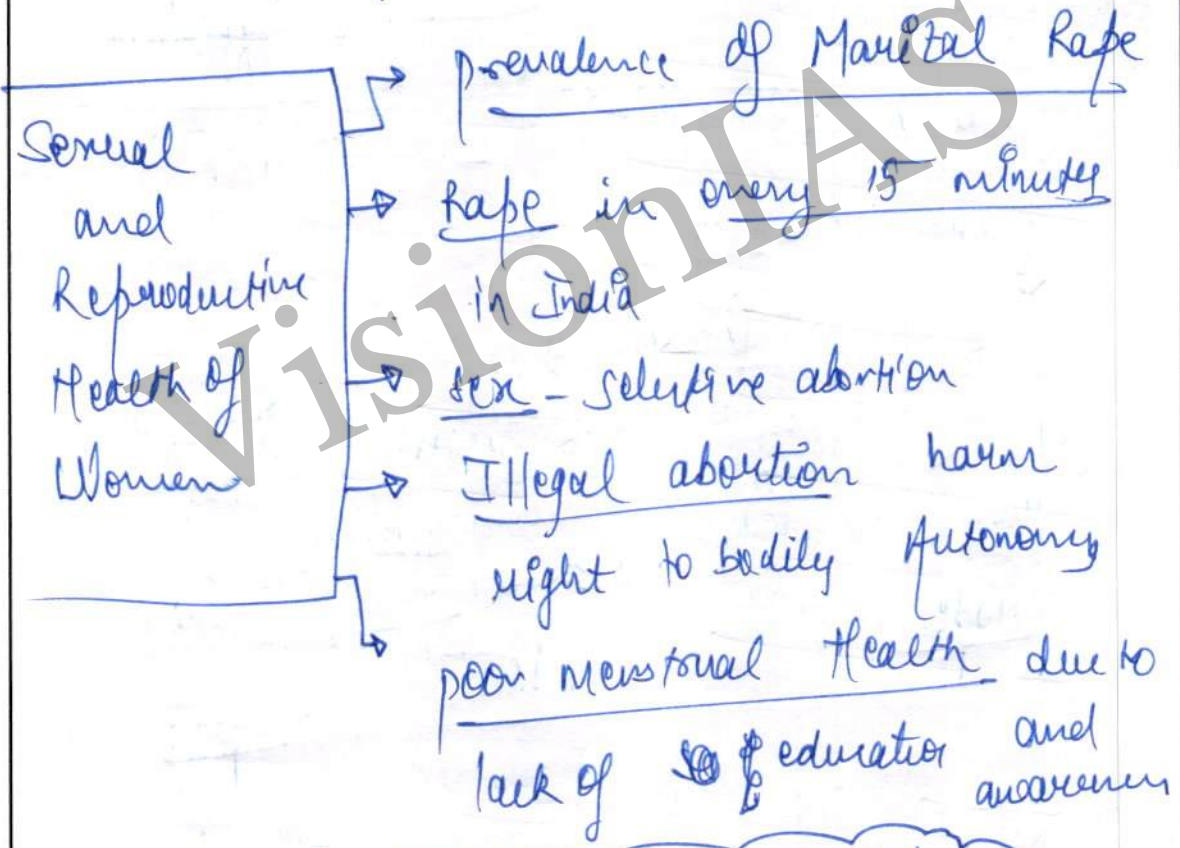 Sexual
and
Reproductive
Health of
Women
prevalence of Marital Rape
Rape in every 15 minutes
in India
sex - selective abortion
Illegal abortion harm
right to bodily Autonomy
poor menstrual Health due to
lack of education and
awareness
VisionIAS